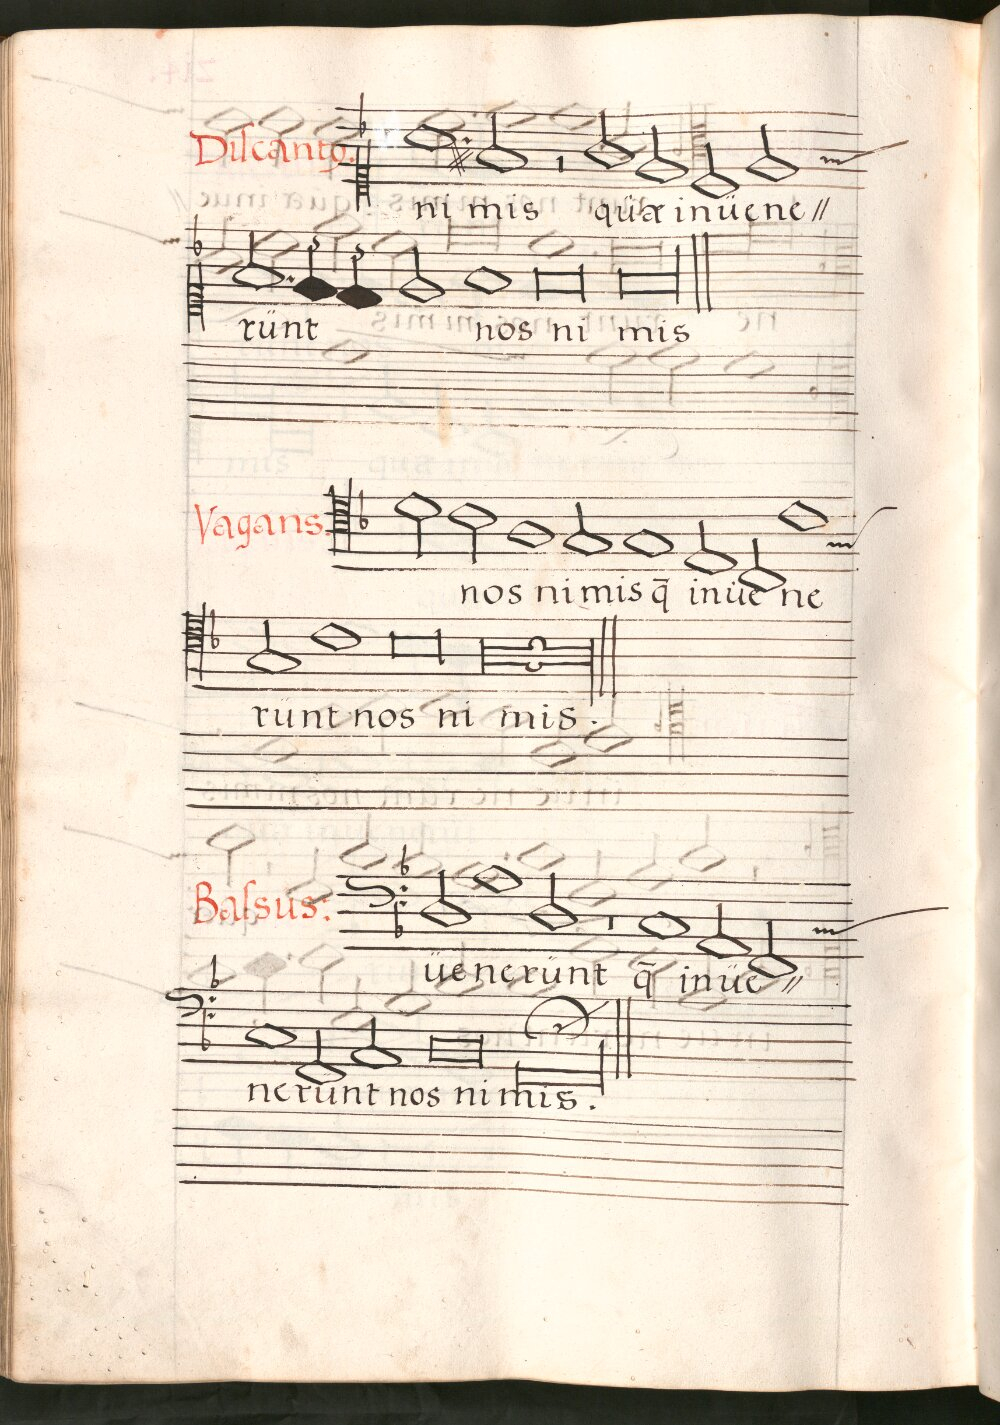 Discanto.
ni mis quæ inüene //
rünt nos ni mis
Vagans.
nos ni mis q̄ inüe ne
rünt nos ni mis .
Baſsus:
üenerünt q̄ inüe //
nerünt nos ni mis .